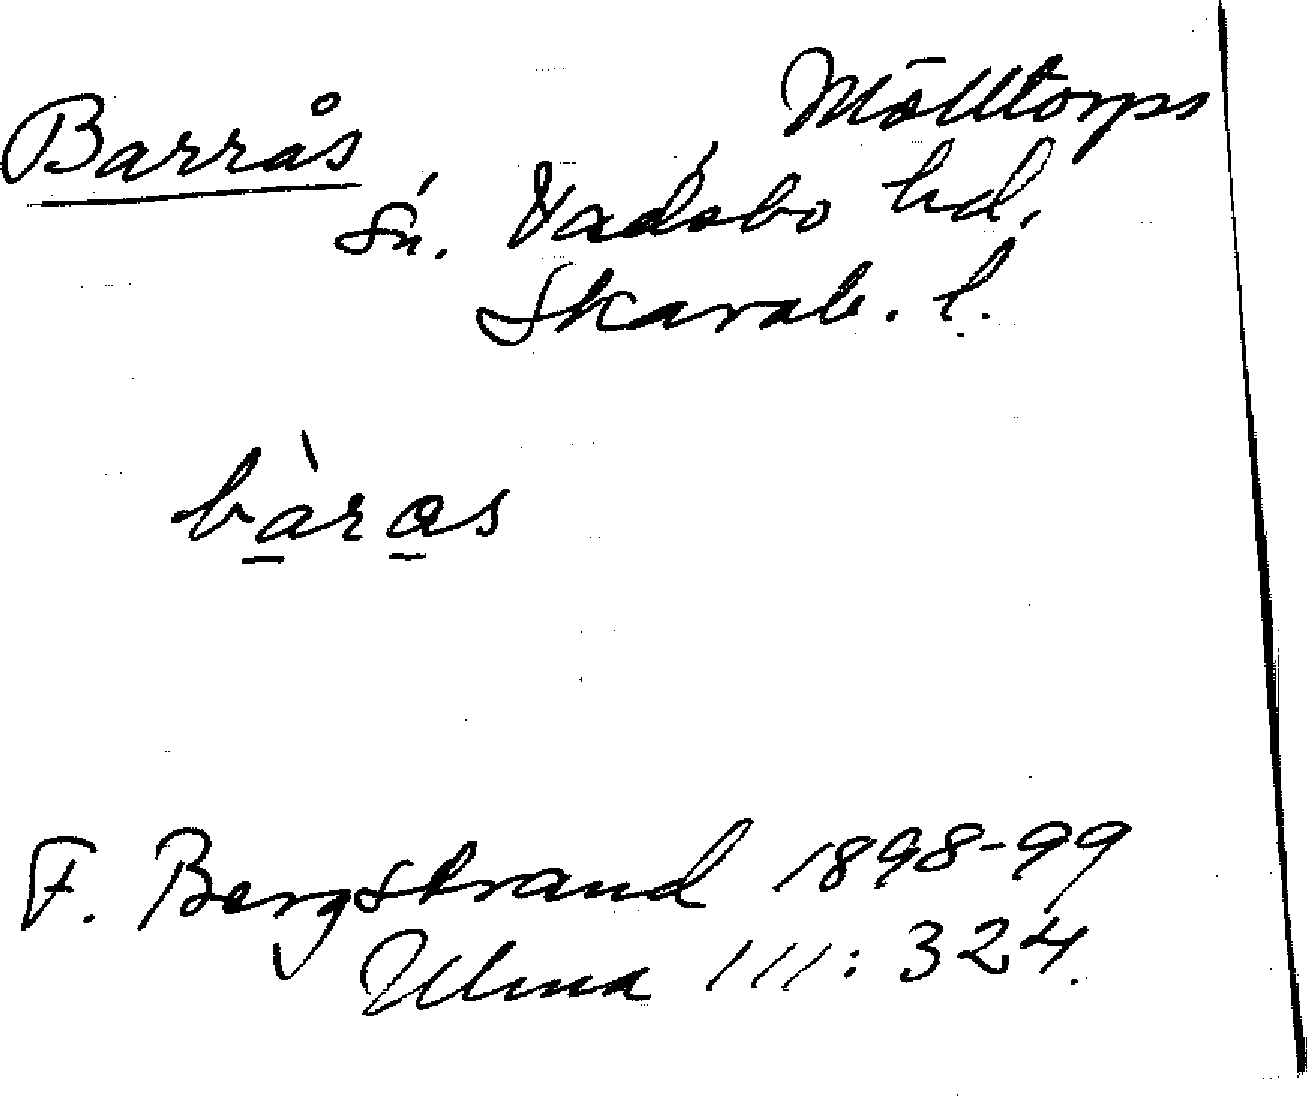 Barrås Mölltorps
sn. Vadsbo hd.
Skarab. l.
bàras
F. Bergstrand 1898-99
Ulma 111: 324.